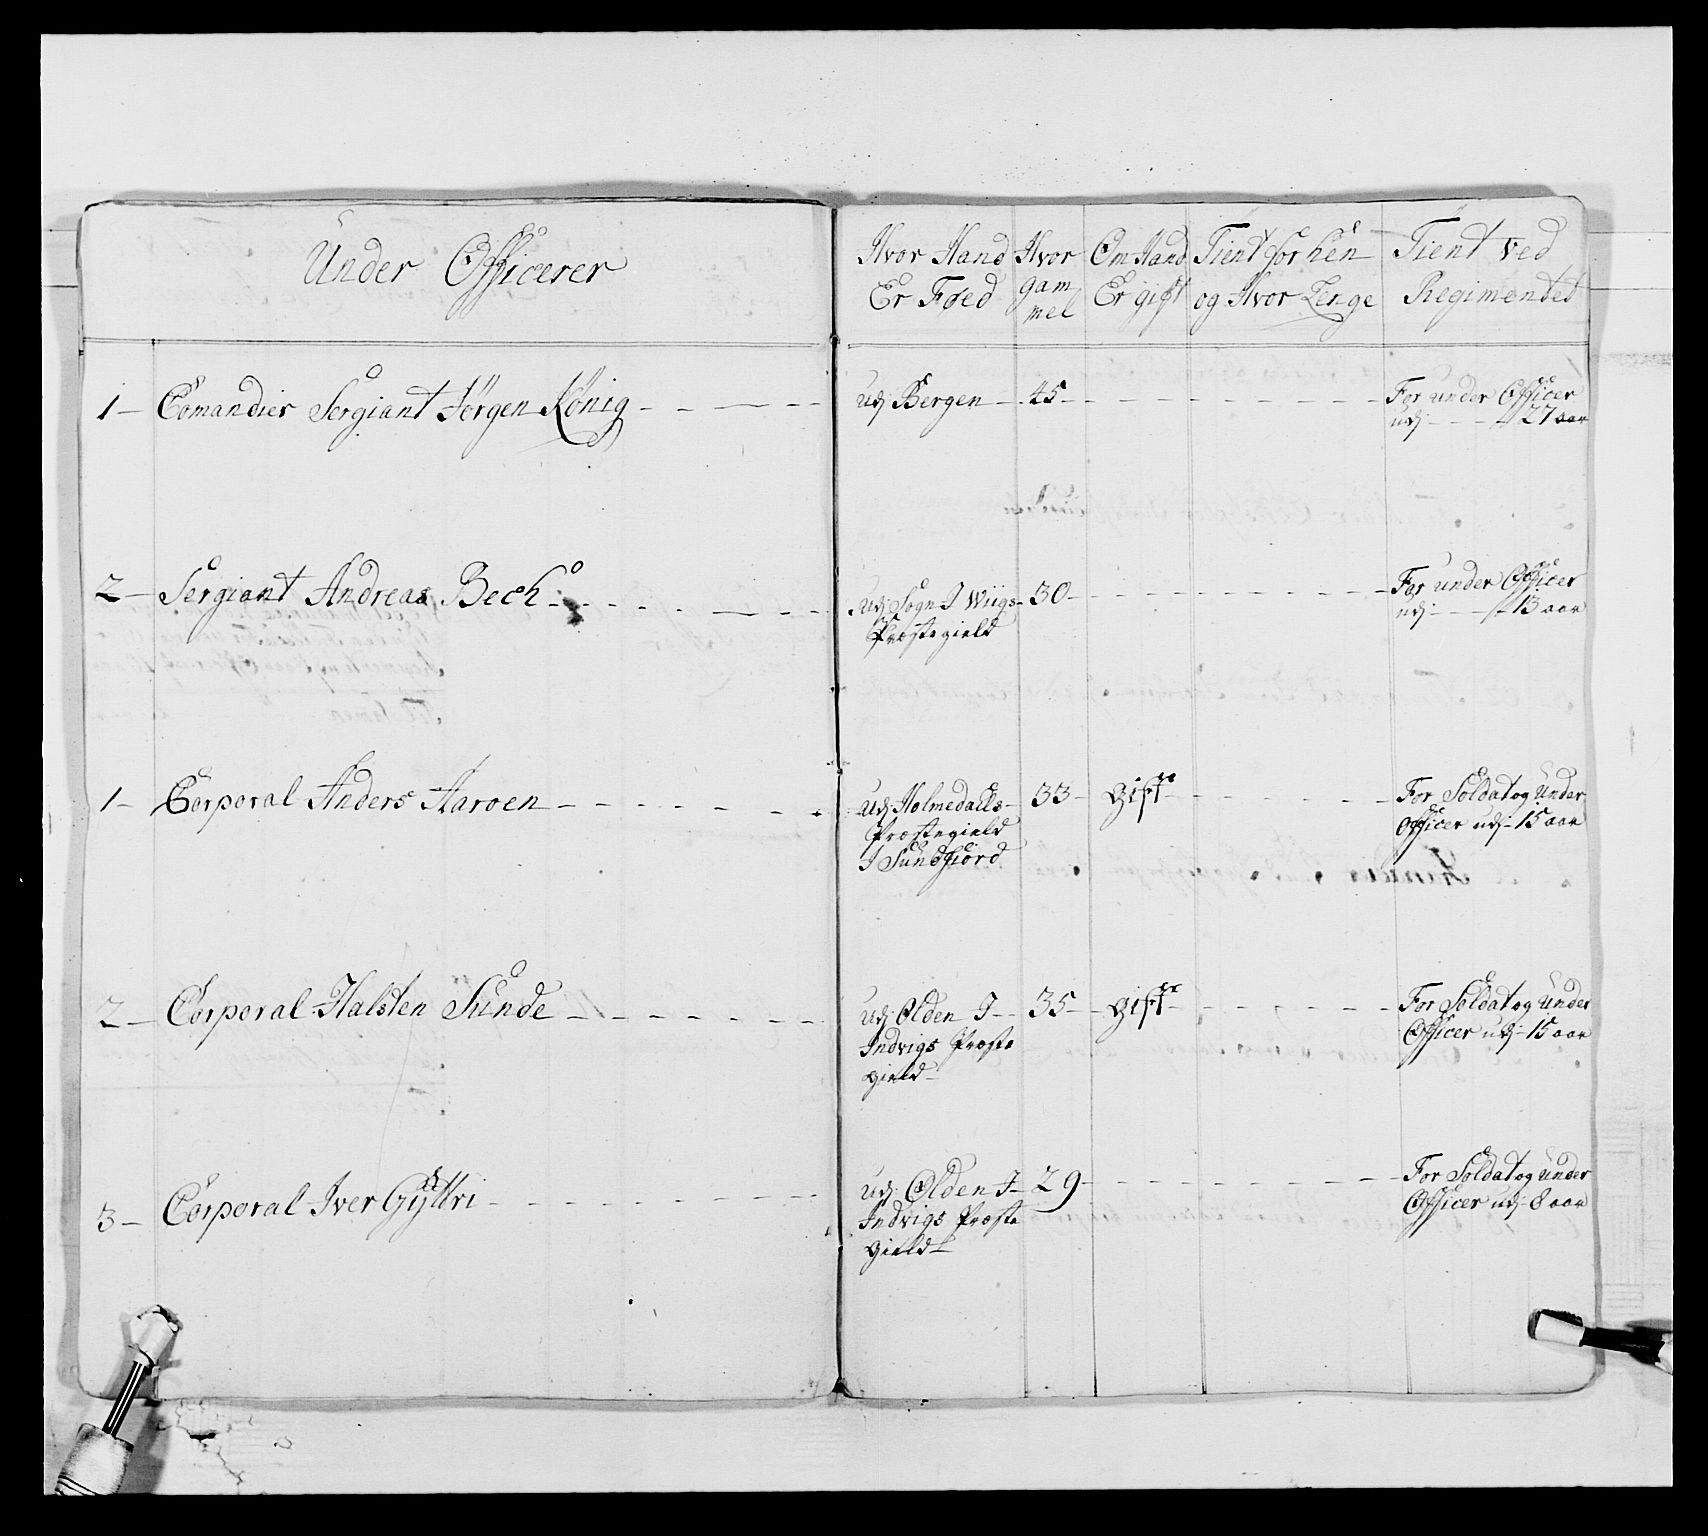 Under Officerer
Hvor Hand Er Føed
Hvor gam mel
Om Hand Er gift
Tient for hen og Hvor Lenge
Tient ved Regimentet
1 Comandier Sergiant Jörgen König
udj Bergen 45 For under Officer
udj 27 aar
2 Sergiant Andreas Bech
udj Sogn I Wiigs 30 For under Officer
Præstegield udj 13 aar
1 Corporal Anders Aaroen
udj Holmedahls 33 gift For Soldat og Under
Præstegield Officer udj 15 aar
I Sundfiord
2 Corporal Halsten Sunde
udj Olden I 35 gift For Soldat og Under
Indvigs Præste Officer udj 15 aar
gield
3 Corporal Iver Gÿttri
udj Olden I 29 For Soldat og under
Indvigs Præste Officer udj 8 aar
gield